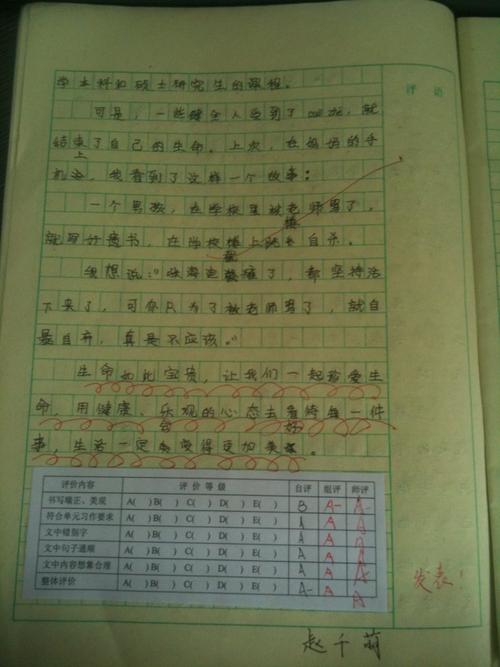 学本科和硕士研究生的课程。
可是，一些健全人受到了，就
结束了自己的生命。上次，在妈妈的手
机上，我看到了这样一个故事：
一个男孩，在学校里被老师骂了，
就写好遗书，在学校楼上跳自杀。
我想说：“张海迪瘫痪了，都坚持活
下来了，可你只为了被老师骂了，就自
暴自弃，真是不应该。”
生命如此宝贵，让我们一起珍爱生
命，用健康、乐观的心态去看待每一件
事，生活一定会变得更加美好。
评语
评价内容 评价等级 自评 组评 师评
书写端正、美观 A( ) B( ) C( ) D( ) E( ) B A- A-
符合单元习作要求 A( ) B( ) C( ) D( ) E( ) A A A
文中错别字 A( ) B( ) C( ) D( ) E( ) A A A
文中句子通顺 A( ) B( ) C( ) D( ) E( ) A A A
文中内容想象合理 A( ) B( ) C( ) D( ) E( ) A A A
整体评价 A( ) B( ) C( ) D( ) E( ) A- A A
发表！
赵千萌